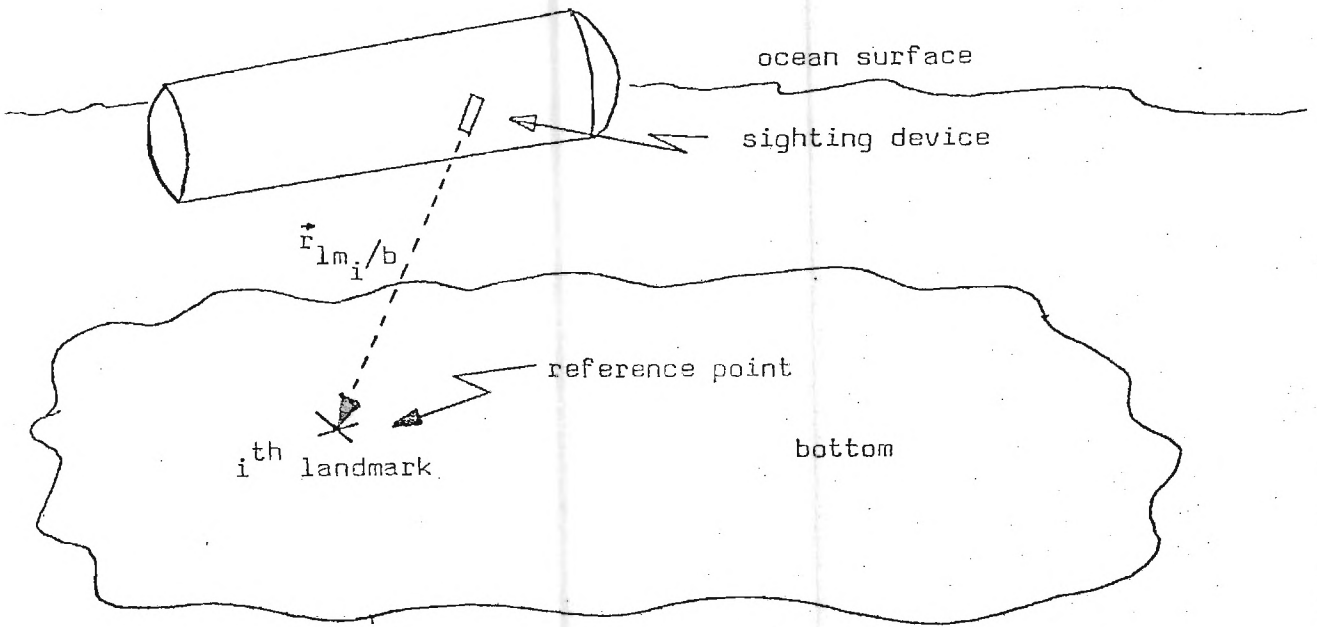 ocean surface
sighting device
r⃗lm_i/b
reference point
i^th landmark
bottom